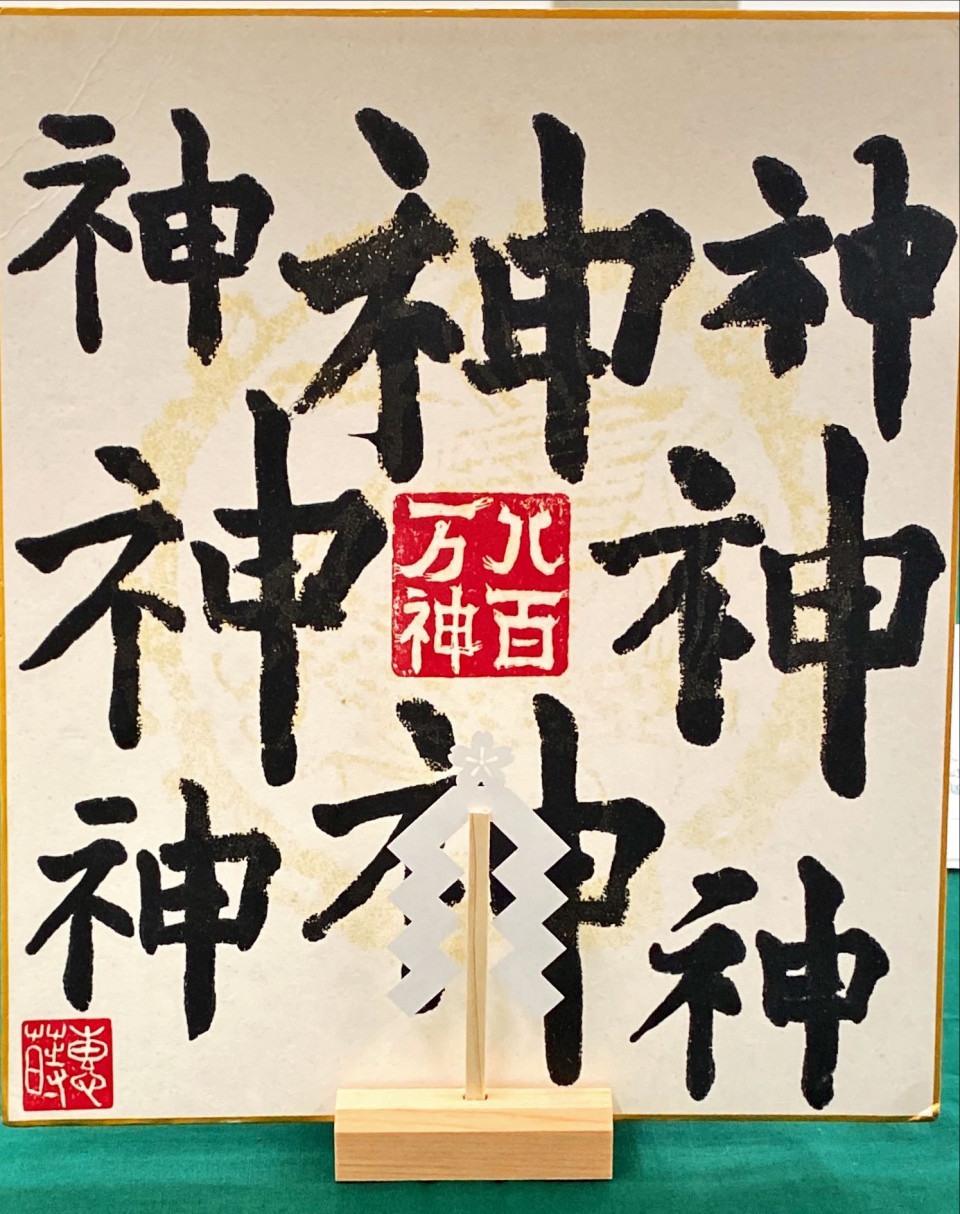 神 神 神
神 神
八百
万神
神 神 神